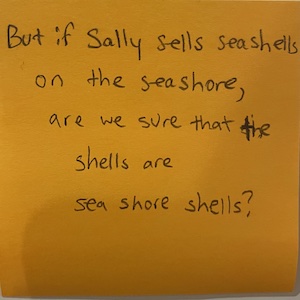 But if Sally sells seashells
on the seashore,
are we sure that the
shells are
sea shore shells?